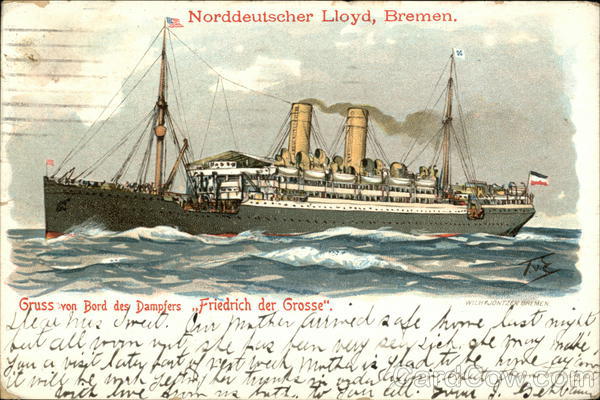 Norddeutscher Lloyd, Bremen.
Gruss von Bord des Dampfers „Friedrich der Grosse".
WILH. JÖNTZEN BREMEN.
Dear Mrs Sweet. Our Mother arrived safe home last night
but all worn out, she has been very sea sick, she may make
You a visit later part of next week, Mother is glad to be home
it will be
with love from us both, to You all. from J.
CardCow.com